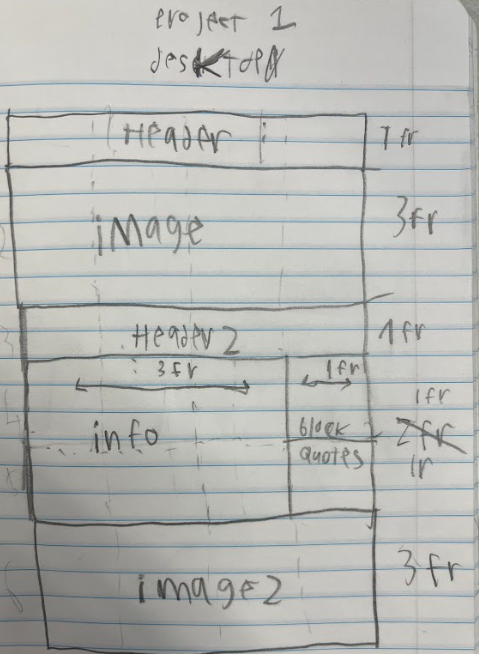 project 1
desktop
Header
1fr
image
3fr
Header 2
1fr
3fr
1fr
info
block
quotes
1fr
2fr
1r
image2
3fr